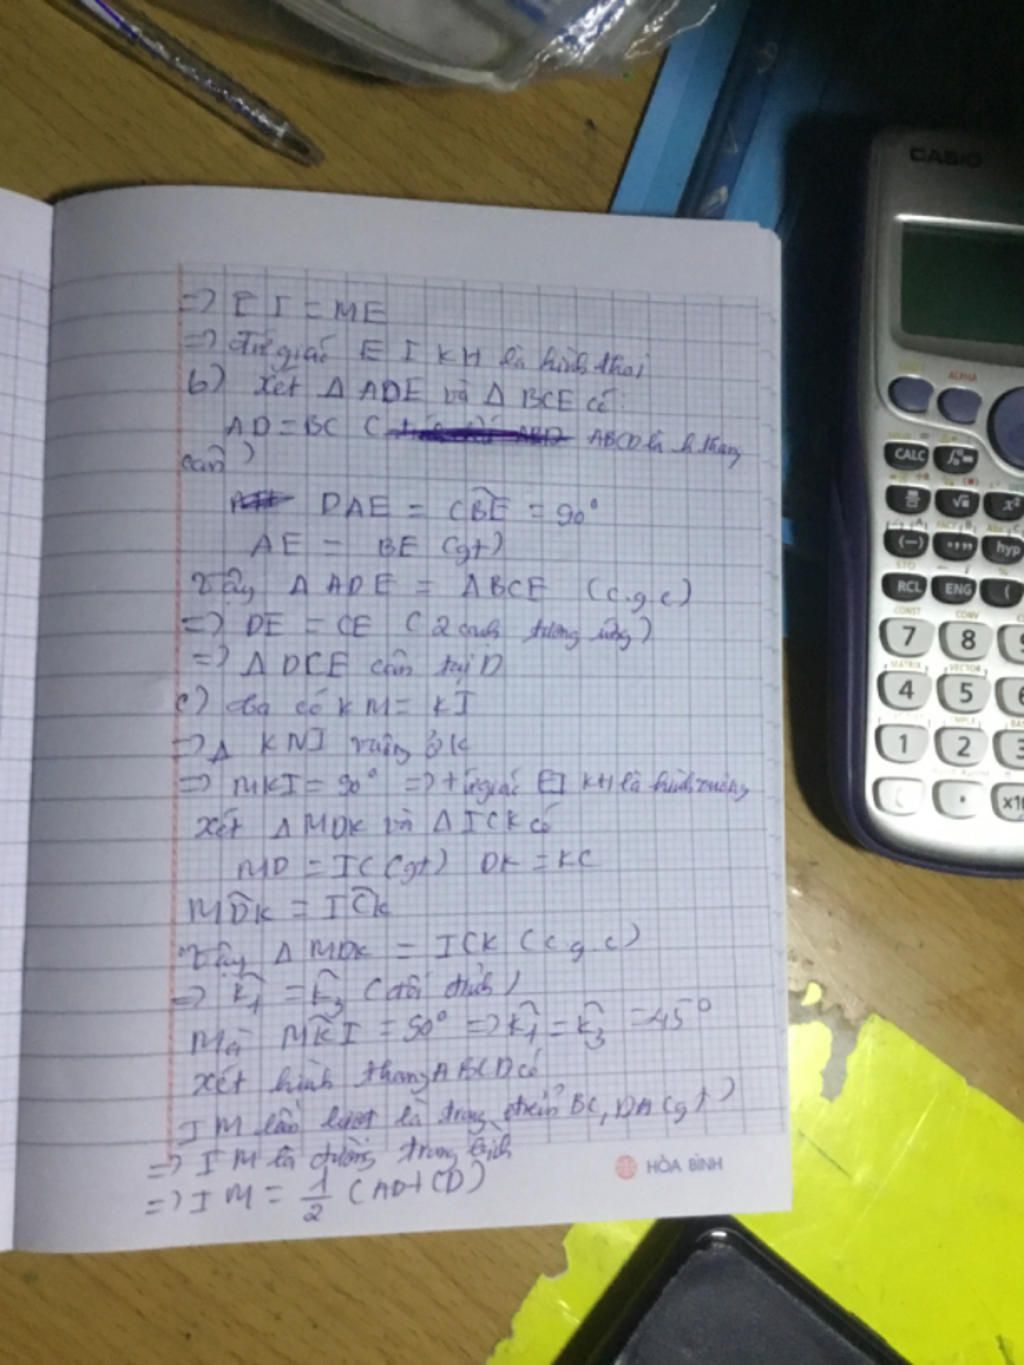 => E I = ME
=> tứ giác E I KH là hình thoi
b) Xét Δ ADE và Δ BCE có:
AD = BC ( ABCD là h thang
cân )
DAE = CBE = 90°
AE = BE (gt)
Vậy Δ ADE = ΔBCE (c.g.c)
=> DE = CE (2 cạnh tương ứng)
=> Δ DCE cân tại D
c) Ta có KM = KI
=> Δ KNI vuông ở K
=> MKI = 90° => tứ giác EI KH là hình vuông
Xét Δ MDK và Δ ICK có
MD = IC (gt) DK = KC
MDK = ICK
Vậy Δ MDK = ICK (c.g.c)
=> K1 = K3 (đối đỉnh)
Mà MKI = 90° => K1 = K3 = 45°
Xét hình thang ABCD có
IM lần lượt là trung điểm BC, DA (gt)
=> IM là đường trung bình
=> IM = 1/2 (AD+CD)
HÒA BÌNH
CASIO
ALPHA
CALC
x²
(−)
hyp
RCL
ENG
(
CONST
CONV
7
8
MATRIX
VECTOR
4
5
6
1
2
3
.
x10